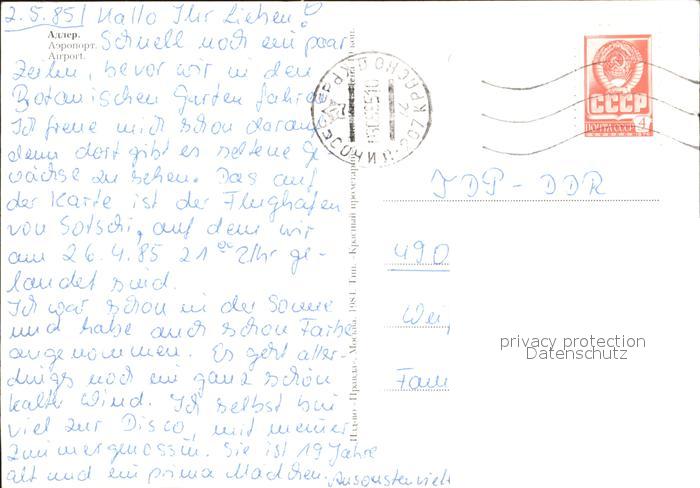 2.5.85 Hallo Ihr Lieben!
Адлер.
Аэропорт.
Airport.
Schnell noch ein paar
Zeilen, bevor wir in den
Botanischen Garten fahren
Ich freue mich schon darauf
denn dort gibt es seltene G
wächse zu sehen. Das auf
der Karte ist der Flughafen
von Sotschi, auf dem wir
am 26.4.85 21 00 Uhr ge-
landet sind.
Ich war schon in der Sonne
und habe auch schon Farbe
angenommen. Es geht aller-
dings noch ein ganz schön
kalter Wind. Ich selbst bin
viel zur Disco mit meiner
Zimmergenossin. Sie ist 19 Jahre
alt und ein prima Mädchen. Ansonsten viel
Изд-во «Правда». Москва. 1984. Тип. «Красный пролетарий».
СССР
ПОЧТА СССР 4
TDP - DDR
490
Wei
Fam
privacy protection
Datenschutz